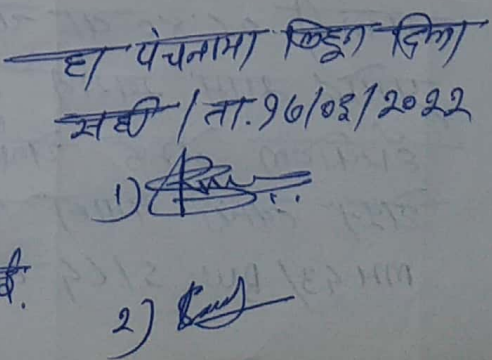 हा पंचनामा लिहून दिला
सही / ता. १७/०३/२०२२
१)
ई.
२)